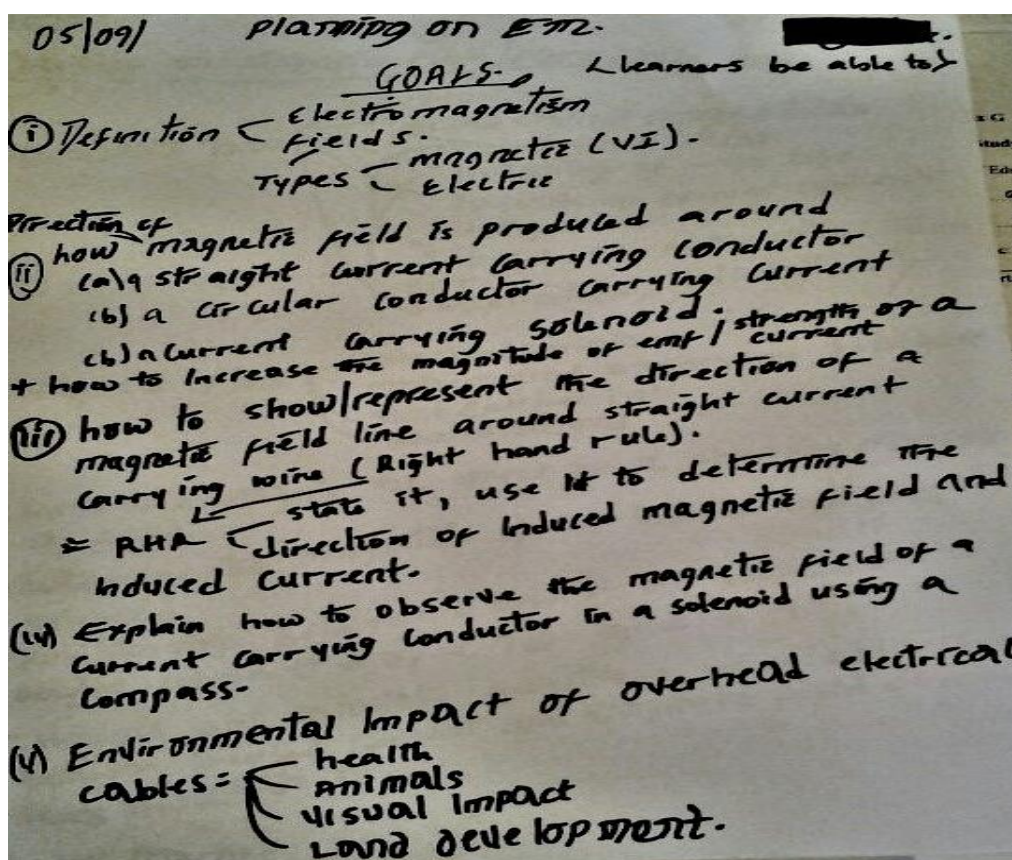 05/09/ Planning on EM.
GOALS. <Learners be able to>
(i) Definition < Electromagnetism
Fields.
Types < magnetic (VI).
Electric
Direction of
(ii) how magnetic field is produced around
(a) a straight current carrying conductor
(b) a circular conductor carrying current
(b) a current carrying solenoid.
+ how to increase the magnitude of emf / strength of a current
(iii) how to show/represent the direction of a
magnetic field line around straight current
carrying wire (Right hand rule).
= RHR < state it, use it to determine the
direction of induced magnetic field and
induced current.
(iv) Explain how to observe the magnetic field of a
current carrying conductor in a solenoid using a
compass-
(v) Environmental Impact of overhead electrical
cables = health
Animals
Visual Impact
Land development.